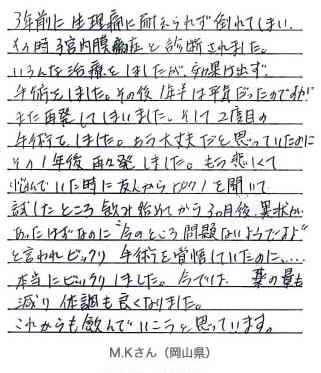 3年前に生理痛に耐えられず倒れてしまい、
その時子宮内膜症と診断されました。
いろんな治療をしましたが、効果は出ず、
手術をしました。その後1年半は平気だったのですが
また再発してしまいました。そして2度目の
手術をしました。もう大丈夫だと思っていたのに
その1年後再々発しました。もう悲しくて
悩んでいた時に友人から を聞いて
試したところ飲み始めてから3ヵ月後、異状が
あったはずなのに"今のところ問題ないようですよ"
と言われビックリ 手術を覚悟していたのに、…
本当にビックリしました。今では、薬の量も
減り 体調も良くなりました。
これからも飲んでいこうと思っています。
M.Kさん（岡山県）